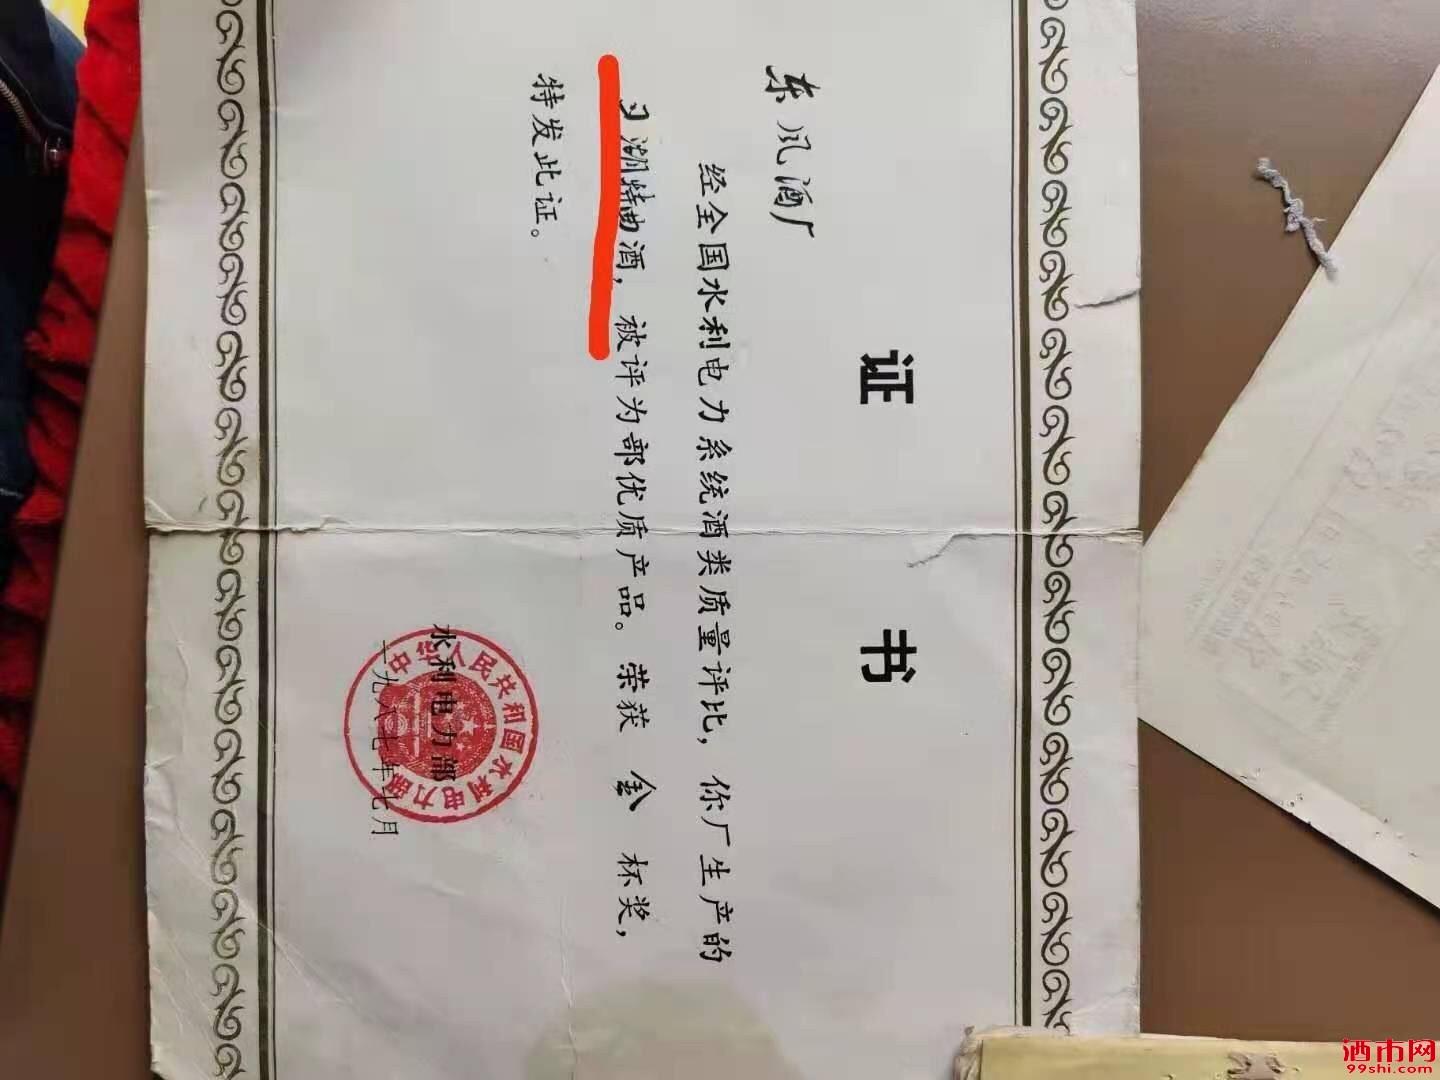 证 书
东风酒厂
经全国水利电力系统酒类质量评比，你厂生产的
习湖特曲酒，被评为部优质产品。荣获 金 杯奖，
特发此证。
水利电力部
一九八七年七月
中华人民共和国水利电力部
酒市网
99shi.com